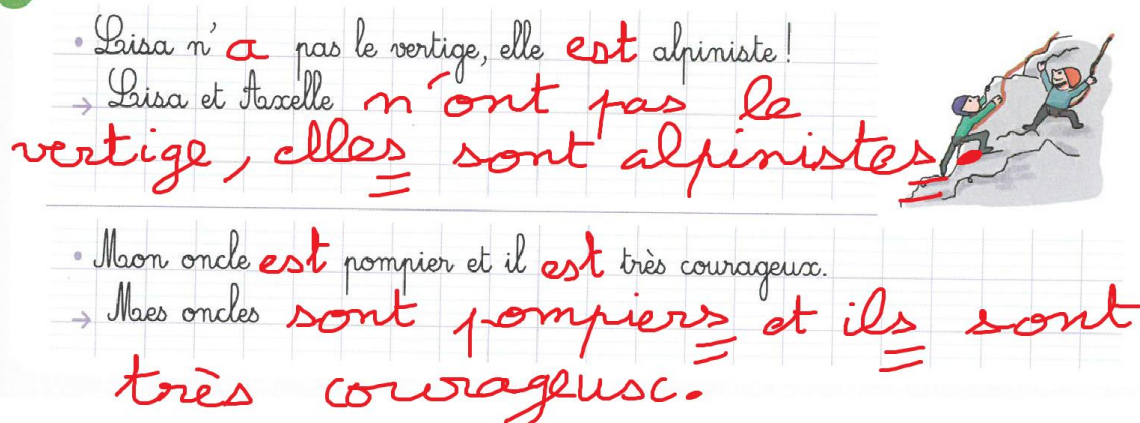 • Lisa n'a pas le vertige, elle est alpiniste !
→ Lisa et Axelle n'ont pas le
vertige, elles sont alpinistes.
• Mon oncle est pompier et il est très courageux.
→ Mes oncles sont pompiers et ils sont
très courageux.